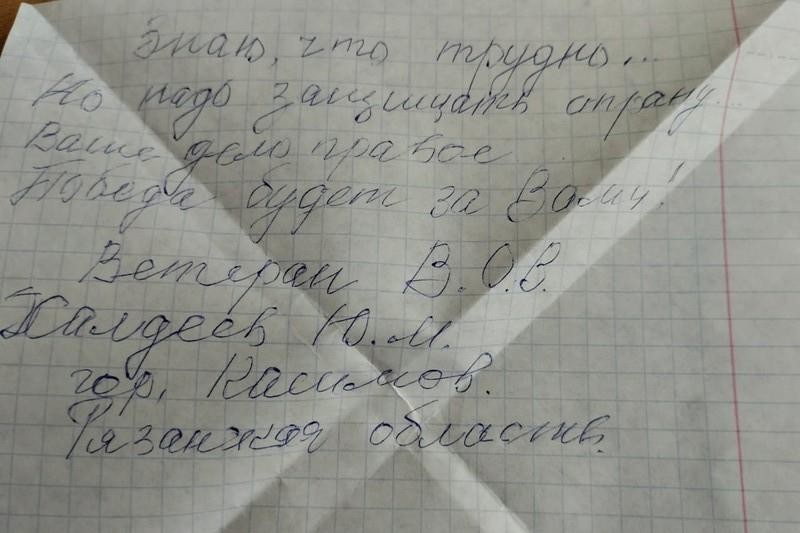 Знаю, что трудно...
Но надо защищать страну...
Ваше дело правое
Победа будет за Вами!
Ветеран В.О.В.
Халдеев Ю.М.
гор. Касимов.
Рязанская область.